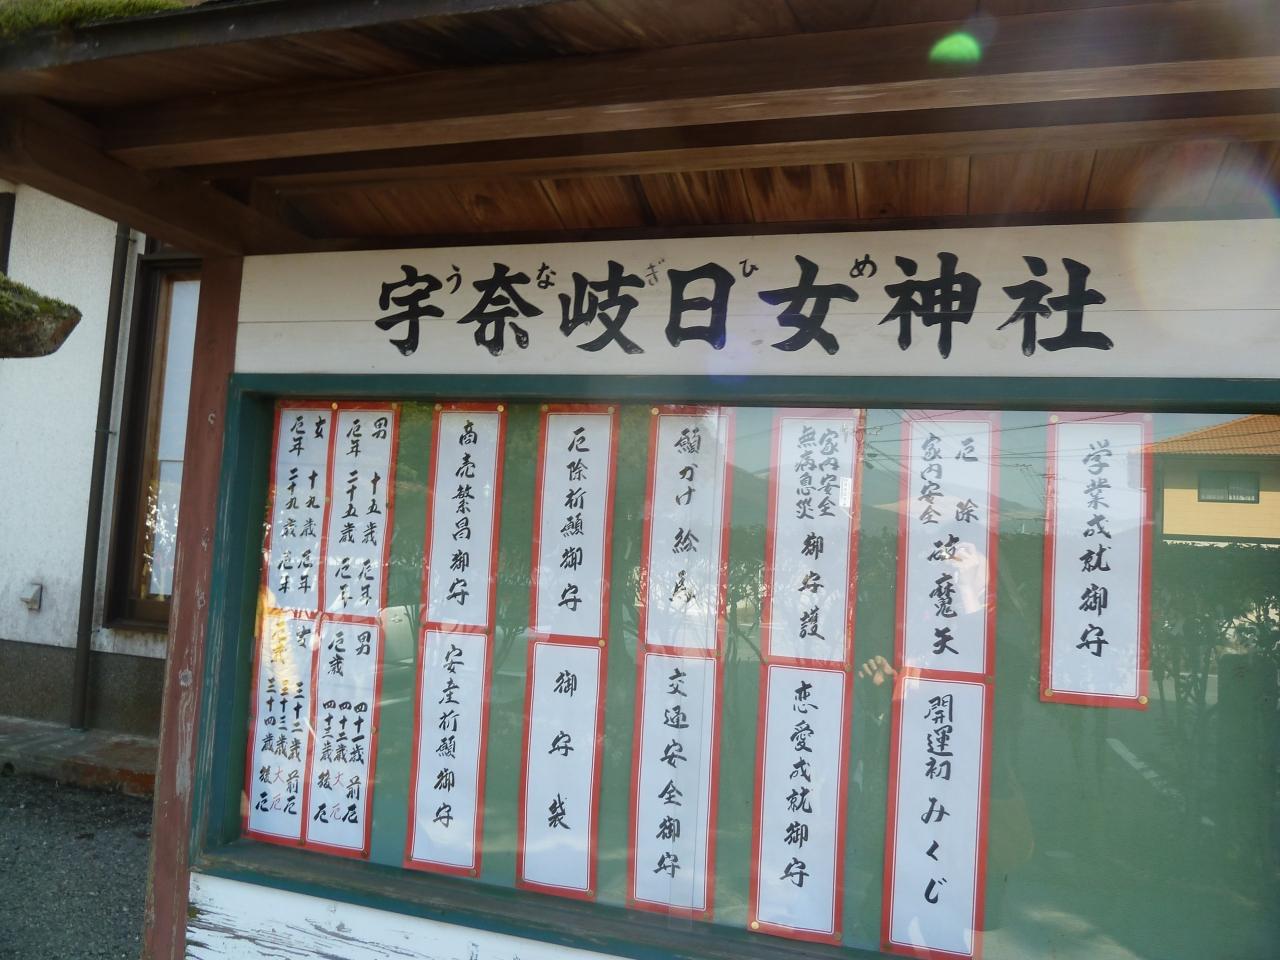 宇奈岐日女神社
うなぎひめ
学業成就御守
厄除
家内安全
破魔矢
開運初みくじ
家内安全
無病息災
御守護
恋愛成就御守
願かけ絵馬
交通安全御守
厄除祈願御守
御守袋
商売繁昌御守
安産祈願御守
男 十五歳 厄年
厄年 二十五歳 厄年
女 十九歳 厄年
厄年 二十九歳 厄年
男 四十一歳 前厄
厄歳 四十二歳 大厄
四十三歳 後厄
女 三十二歳 前厄
三十三歳 大厄
三十四歳 後厄